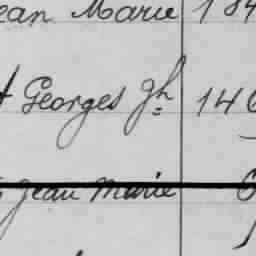 ean Marie 184
Georges Jh 146
Jean Marie